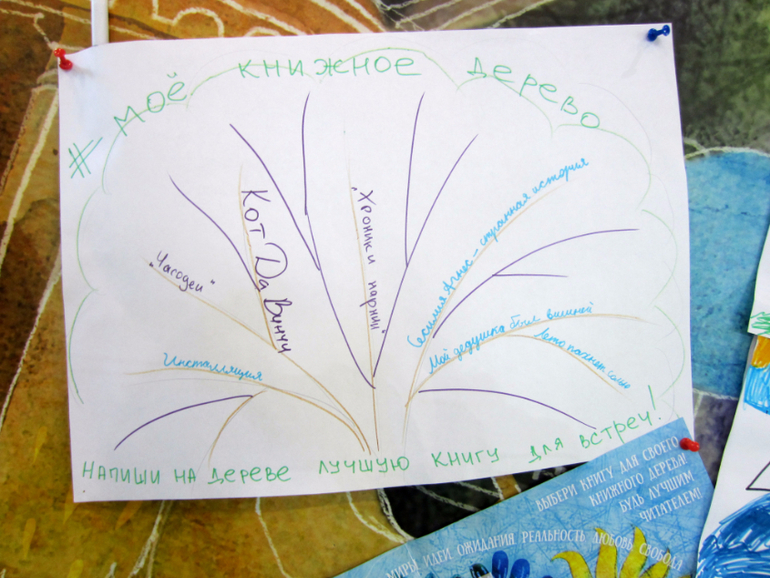 # МОЁ КНИЖНОЕ ДЕРЕВО
"Чагодеи"
Кот Да Винчи
"Хроники нарнии"
Сесилия Агнес - странная история
Инсталляция
Мой дедушка был вишней
Лето пахнет солью
НАПИШИ НА ДЕРЕВЕ ЛУЧШУЮ КНИГУ ДЛЯ ВСТРЕЧ!
ВЫБЕРИ КНИГУ ДЛЯ СВОЕГО
КНИЖНОГО ДЕРЕВА!
БУДЬ ЛУЧШИМ
ЧИТАТЕЛЕМ!
МИРЫ ИДЕИ ОЖИДАНИЯ РЕАЛЬНОСТЬ ЛЮБОВЬ СВОБОДА?